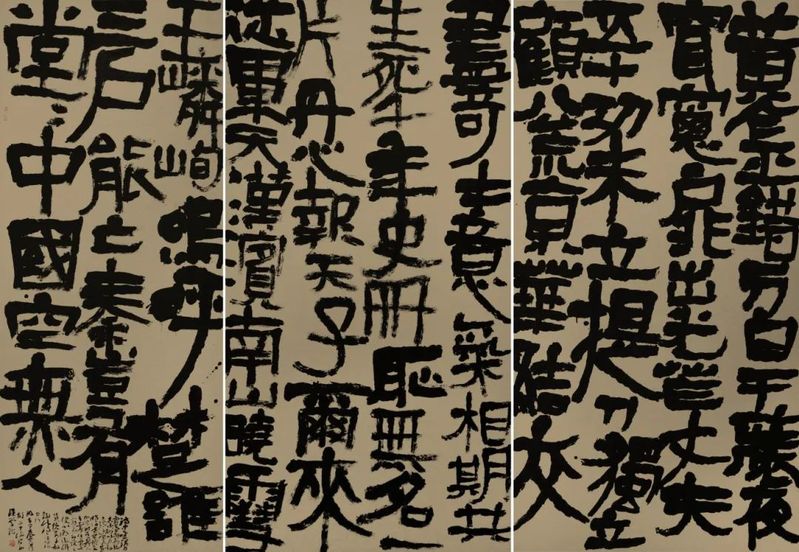 黃金錯刀白玉裝夜
穿窗扉出光芒丈夫
五十功未立提刀獨立
顧八荒京華結交
盡奇士意氣相期共
生死千年史冊恥無名一
片丹心報天子爾來
從軍天漢濱南山曉雪
玉嶙峋嗚呼楚雖
三户能亡秦豈有
堂〻中國空無人